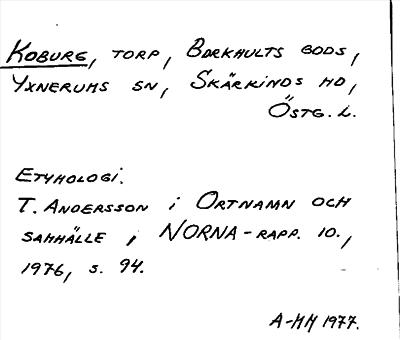 Koburg, torp, Borkhults gods,
Yxnerums sn, Skärkinds hd,
Östg. L.
Etymologi.
T. Andersson i Ortnamn och
samhälle, NORNA-rapp. 10.,
1976, s. 94.
A-MH 1977.